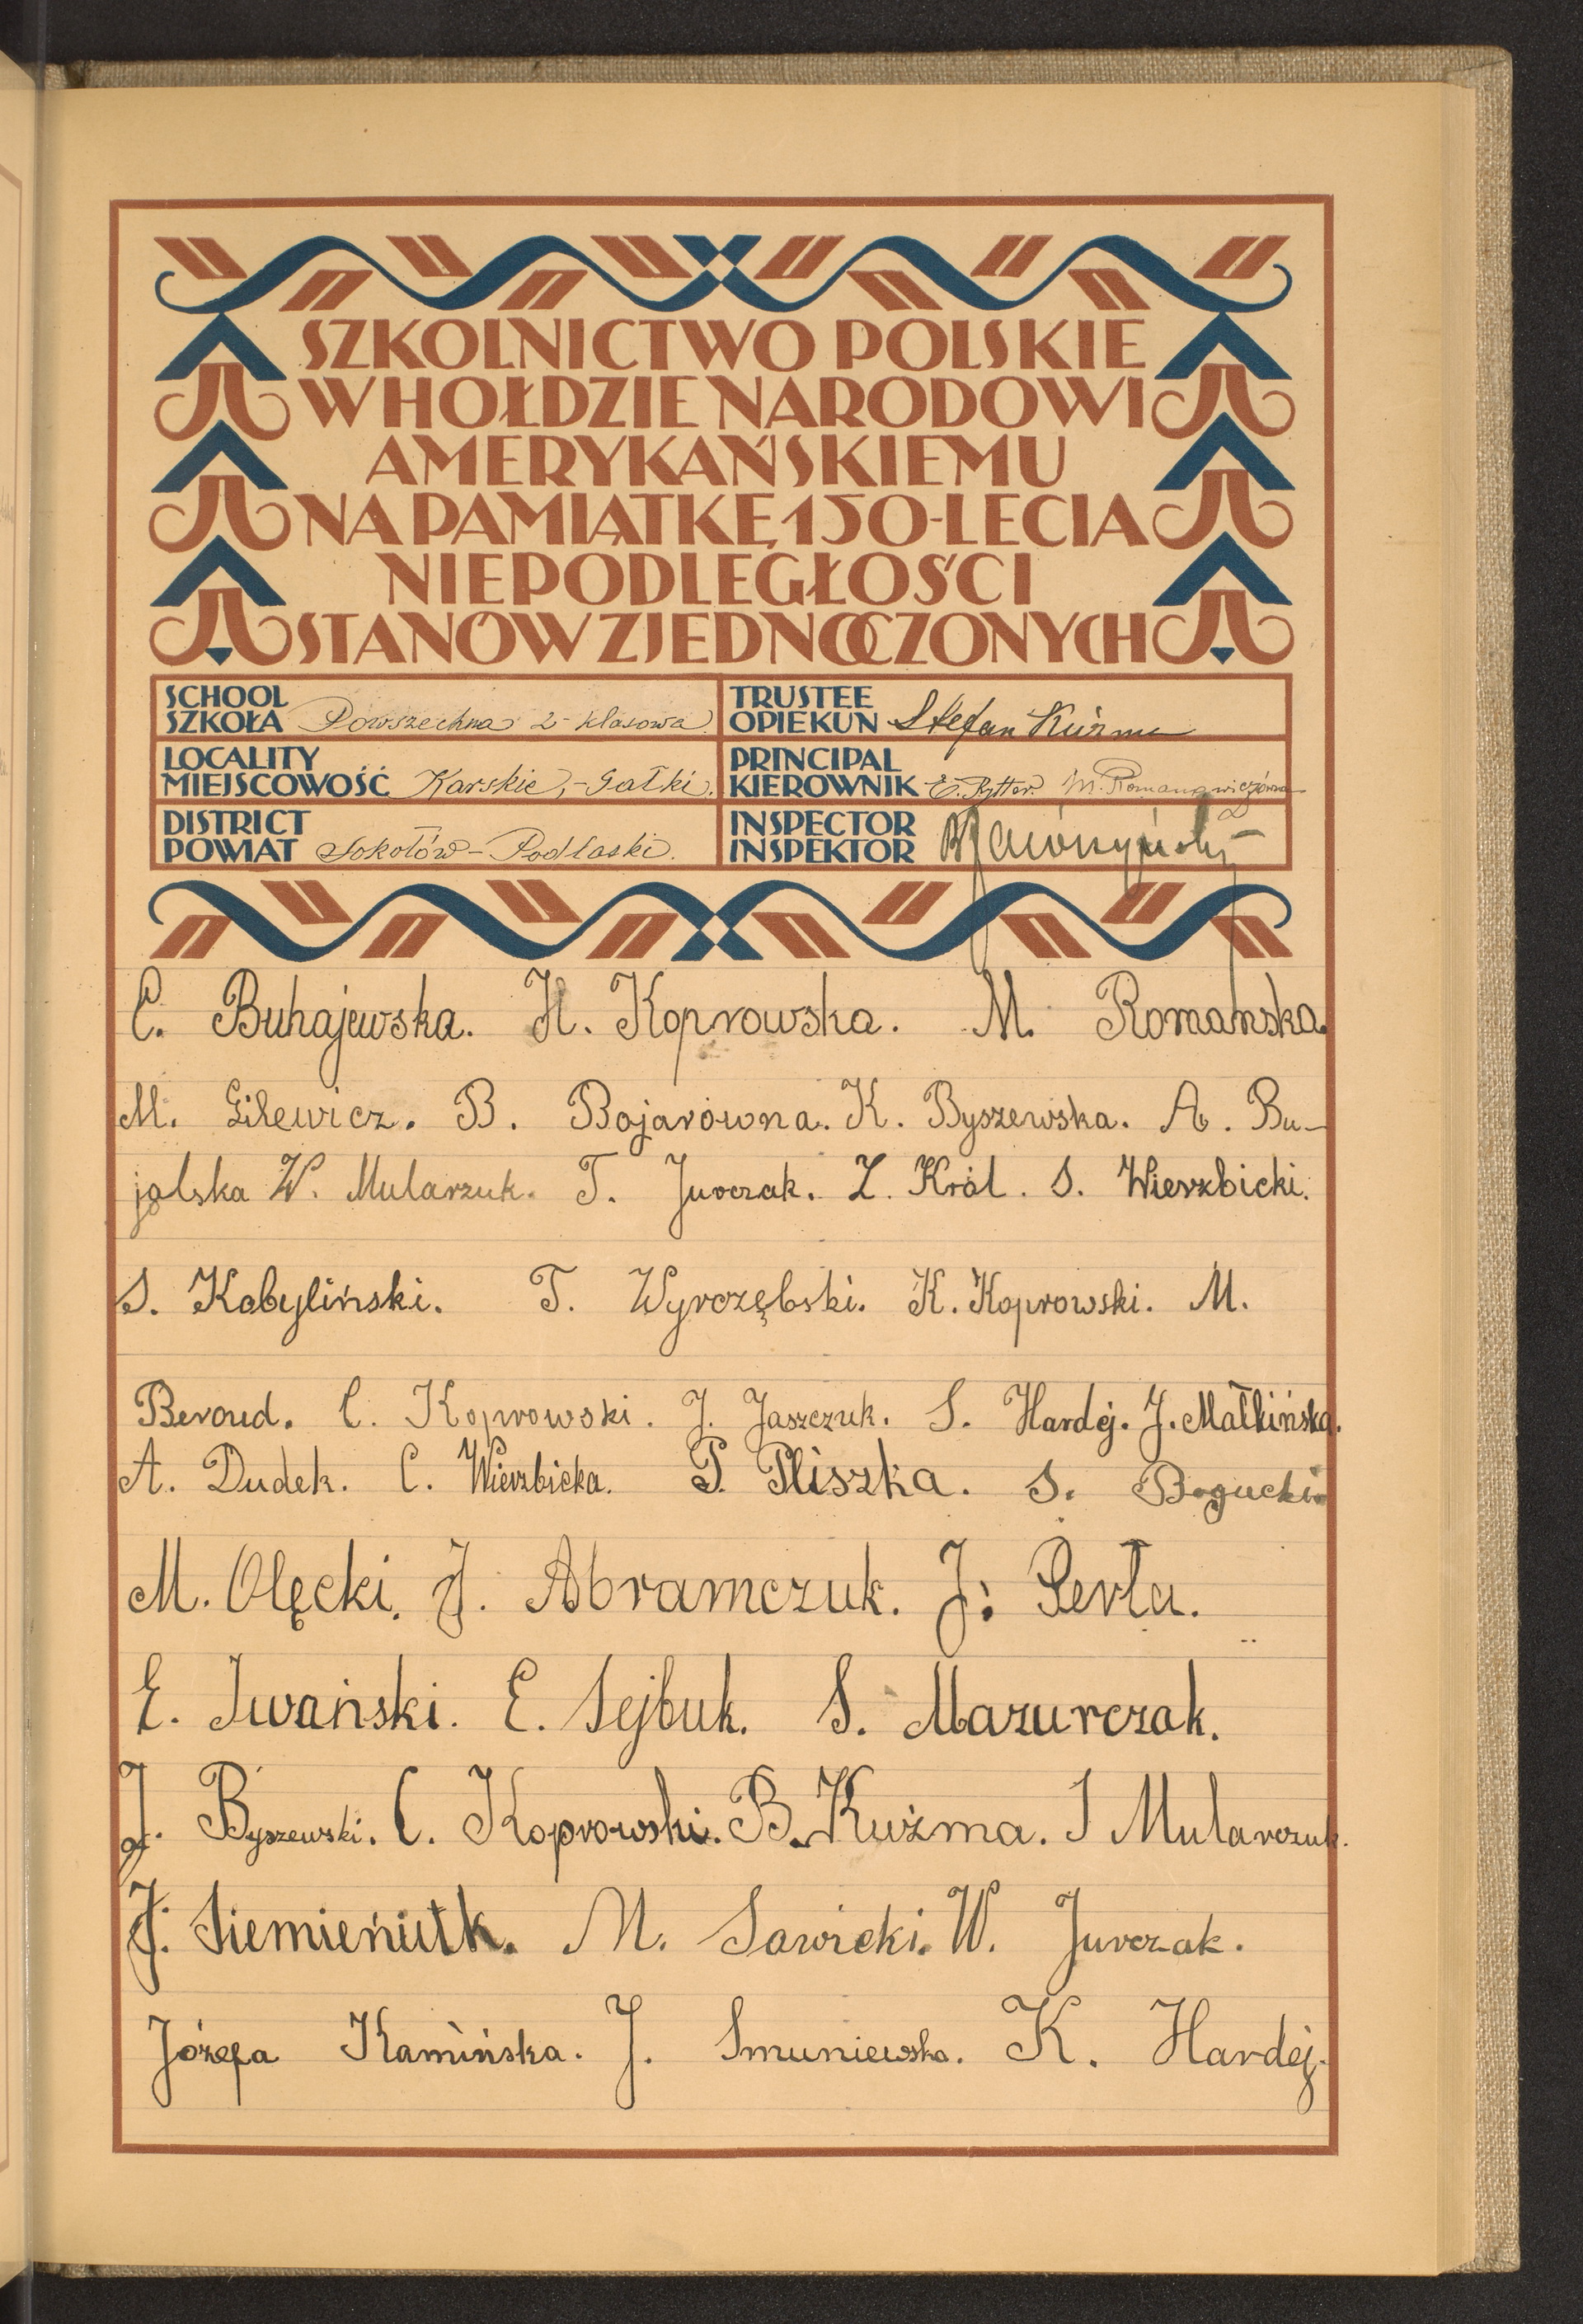 SZKOLNICTWO POLSKIE
W HOŁDZIE NARODOWI
AMERYKAŃSKIEMU
NA PAMIĄTKĘ 150-LECIA
NIEPODLEGŁOŚCI
STANÓW ZJEDNOCZONYCH
SCHOOL
SZKOŁA Powszechna 2-klasowa
TRUSTEE
OPIEKUN Stefan Kuźma
LOCALITY
MIEJSCOWOŚĆ Karskie,-Gałki.
PRINCIPAL
KIEROWNIK E. Rytter. M. Romanowiczówna
DISTRICT
POWIAT Sokołów-Podlaski.
INSPECTOR
INSPEKTOR
C. Buhajewska. H. Koprowska. M. Romańska.
M. Gilewicz. B. Bojarówna. K. Byszewska. A. Bu-
jalska W. Mularzuk. T. Jurczak. Z. Król. S. Wierzbicki.
S. Kobyliński. T. Wyrczębski. K. Koprowski. M.
Beroud. C. Koprowski. J. Jaszczuk. S. Hardéj. J. Małkińska.
A. Dudek. C. Wierzbicka. P. Pliszka. S. Bogucki
M. Olęcki. J. Abramczuk. J. Perła.
E. Iwański. E. Sejbuk. S. Mazurczak.
J. Byszewski. C. Koprowski. B. Kuźma. J Mularczuk.
J. Siemieniuk. M. Sawicki. W. Jurczak.
Józefa Kamińska. J. Smuniewska. K. Hardéj.